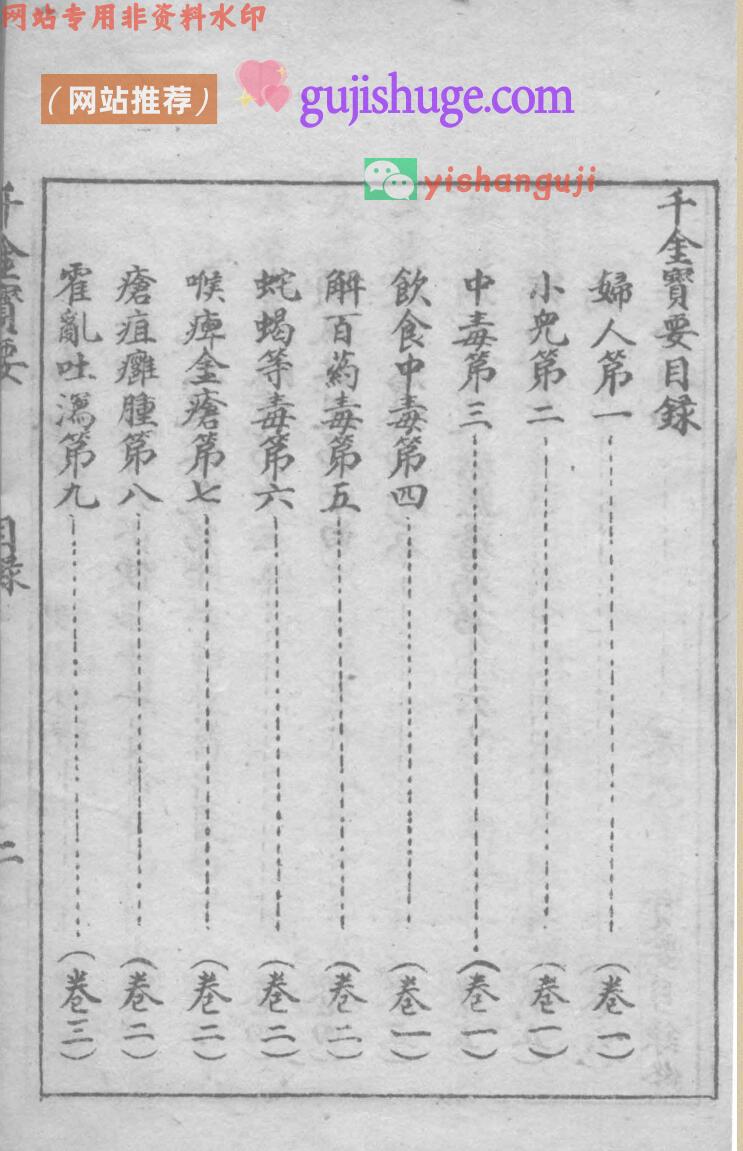 网站专用非资料水印
(网站推荐) gujishuge.com
yishanguji
千金寶要目録
婦人第一(卷一)
小兒第二(卷一)
中毒第三(卷一)
飲食中毒第四(卷一)
解百药毒第五(卷二)
蛇蝎等毒第六(卷二)
喉痺金瘡第七(卷二)
瘡疽癰腫第八(卷二)
霍亂吐瀉第九(卷三)
千金寶要
目録
二